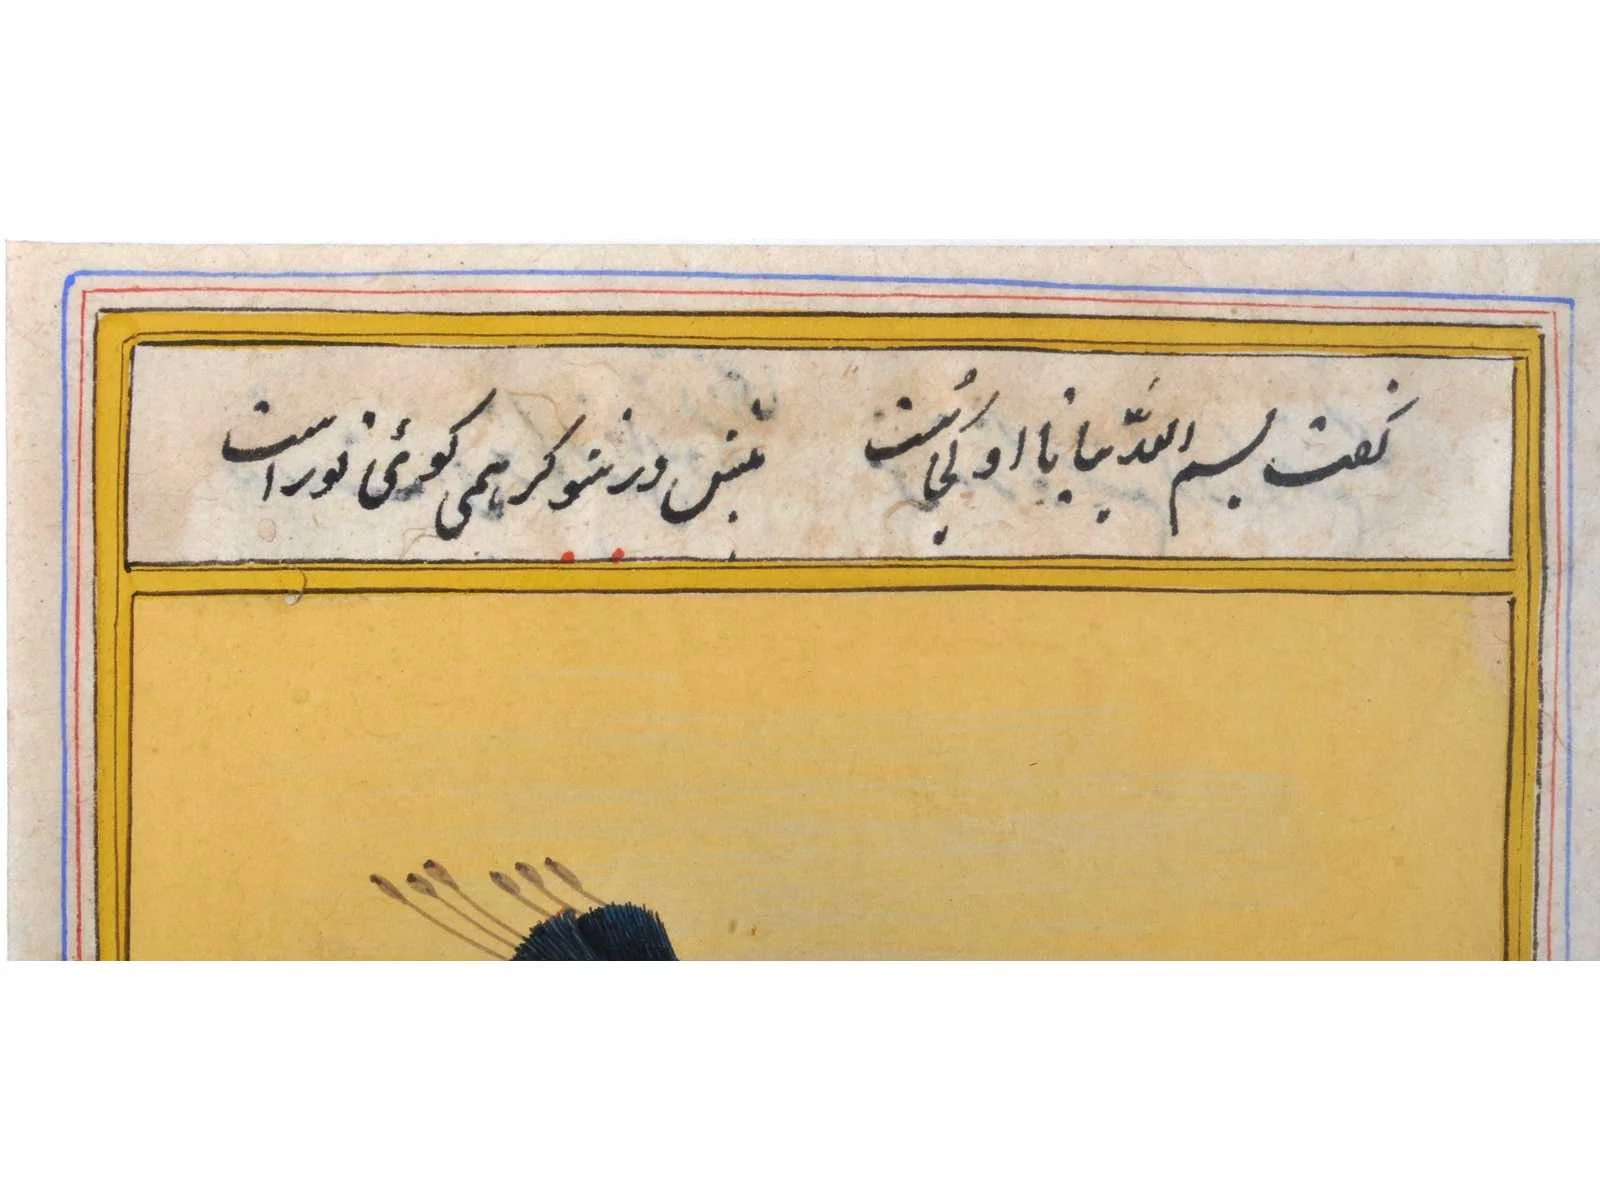 گفت بسم اللّه بیا تا او کجاست پیش در شو گر همی گوئی تو راست